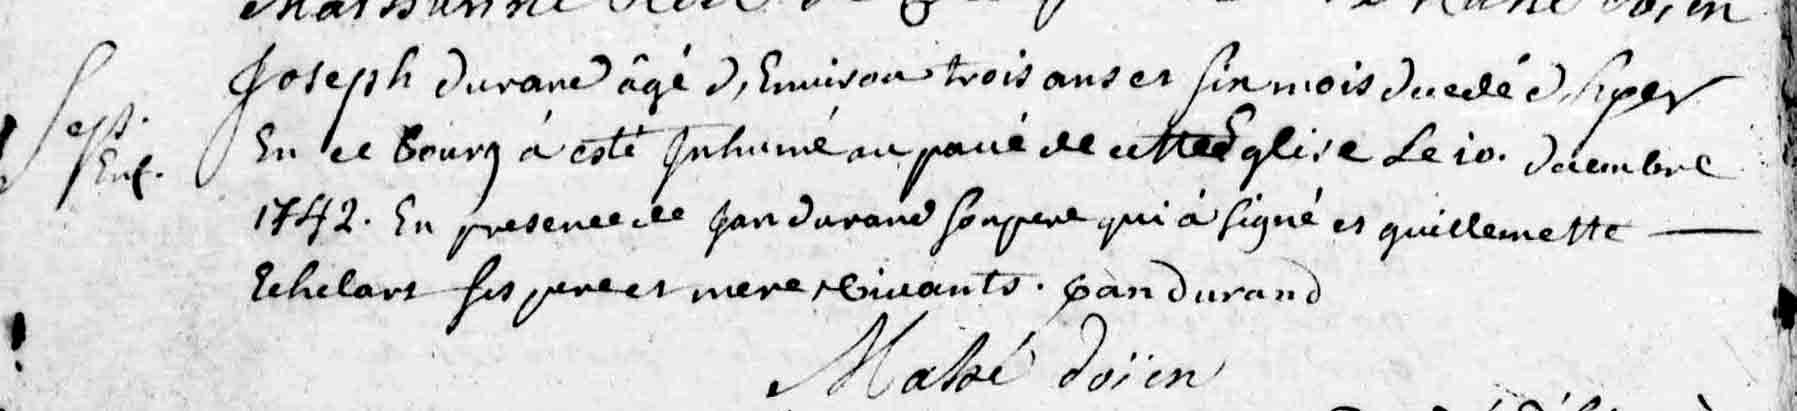 doïen
Joseph durand âgé d'Environ trois ans et six mois decedé d'hyer
sept.
Enf.
En ce Bourg à esté Inhumé au pavé de cette Eglise Le 10. decembre
1742. En presence de Jan durand son pere qui à signé et guillemette
Echelart ses pere et mere vivants. Jan Durand
Massé doïen